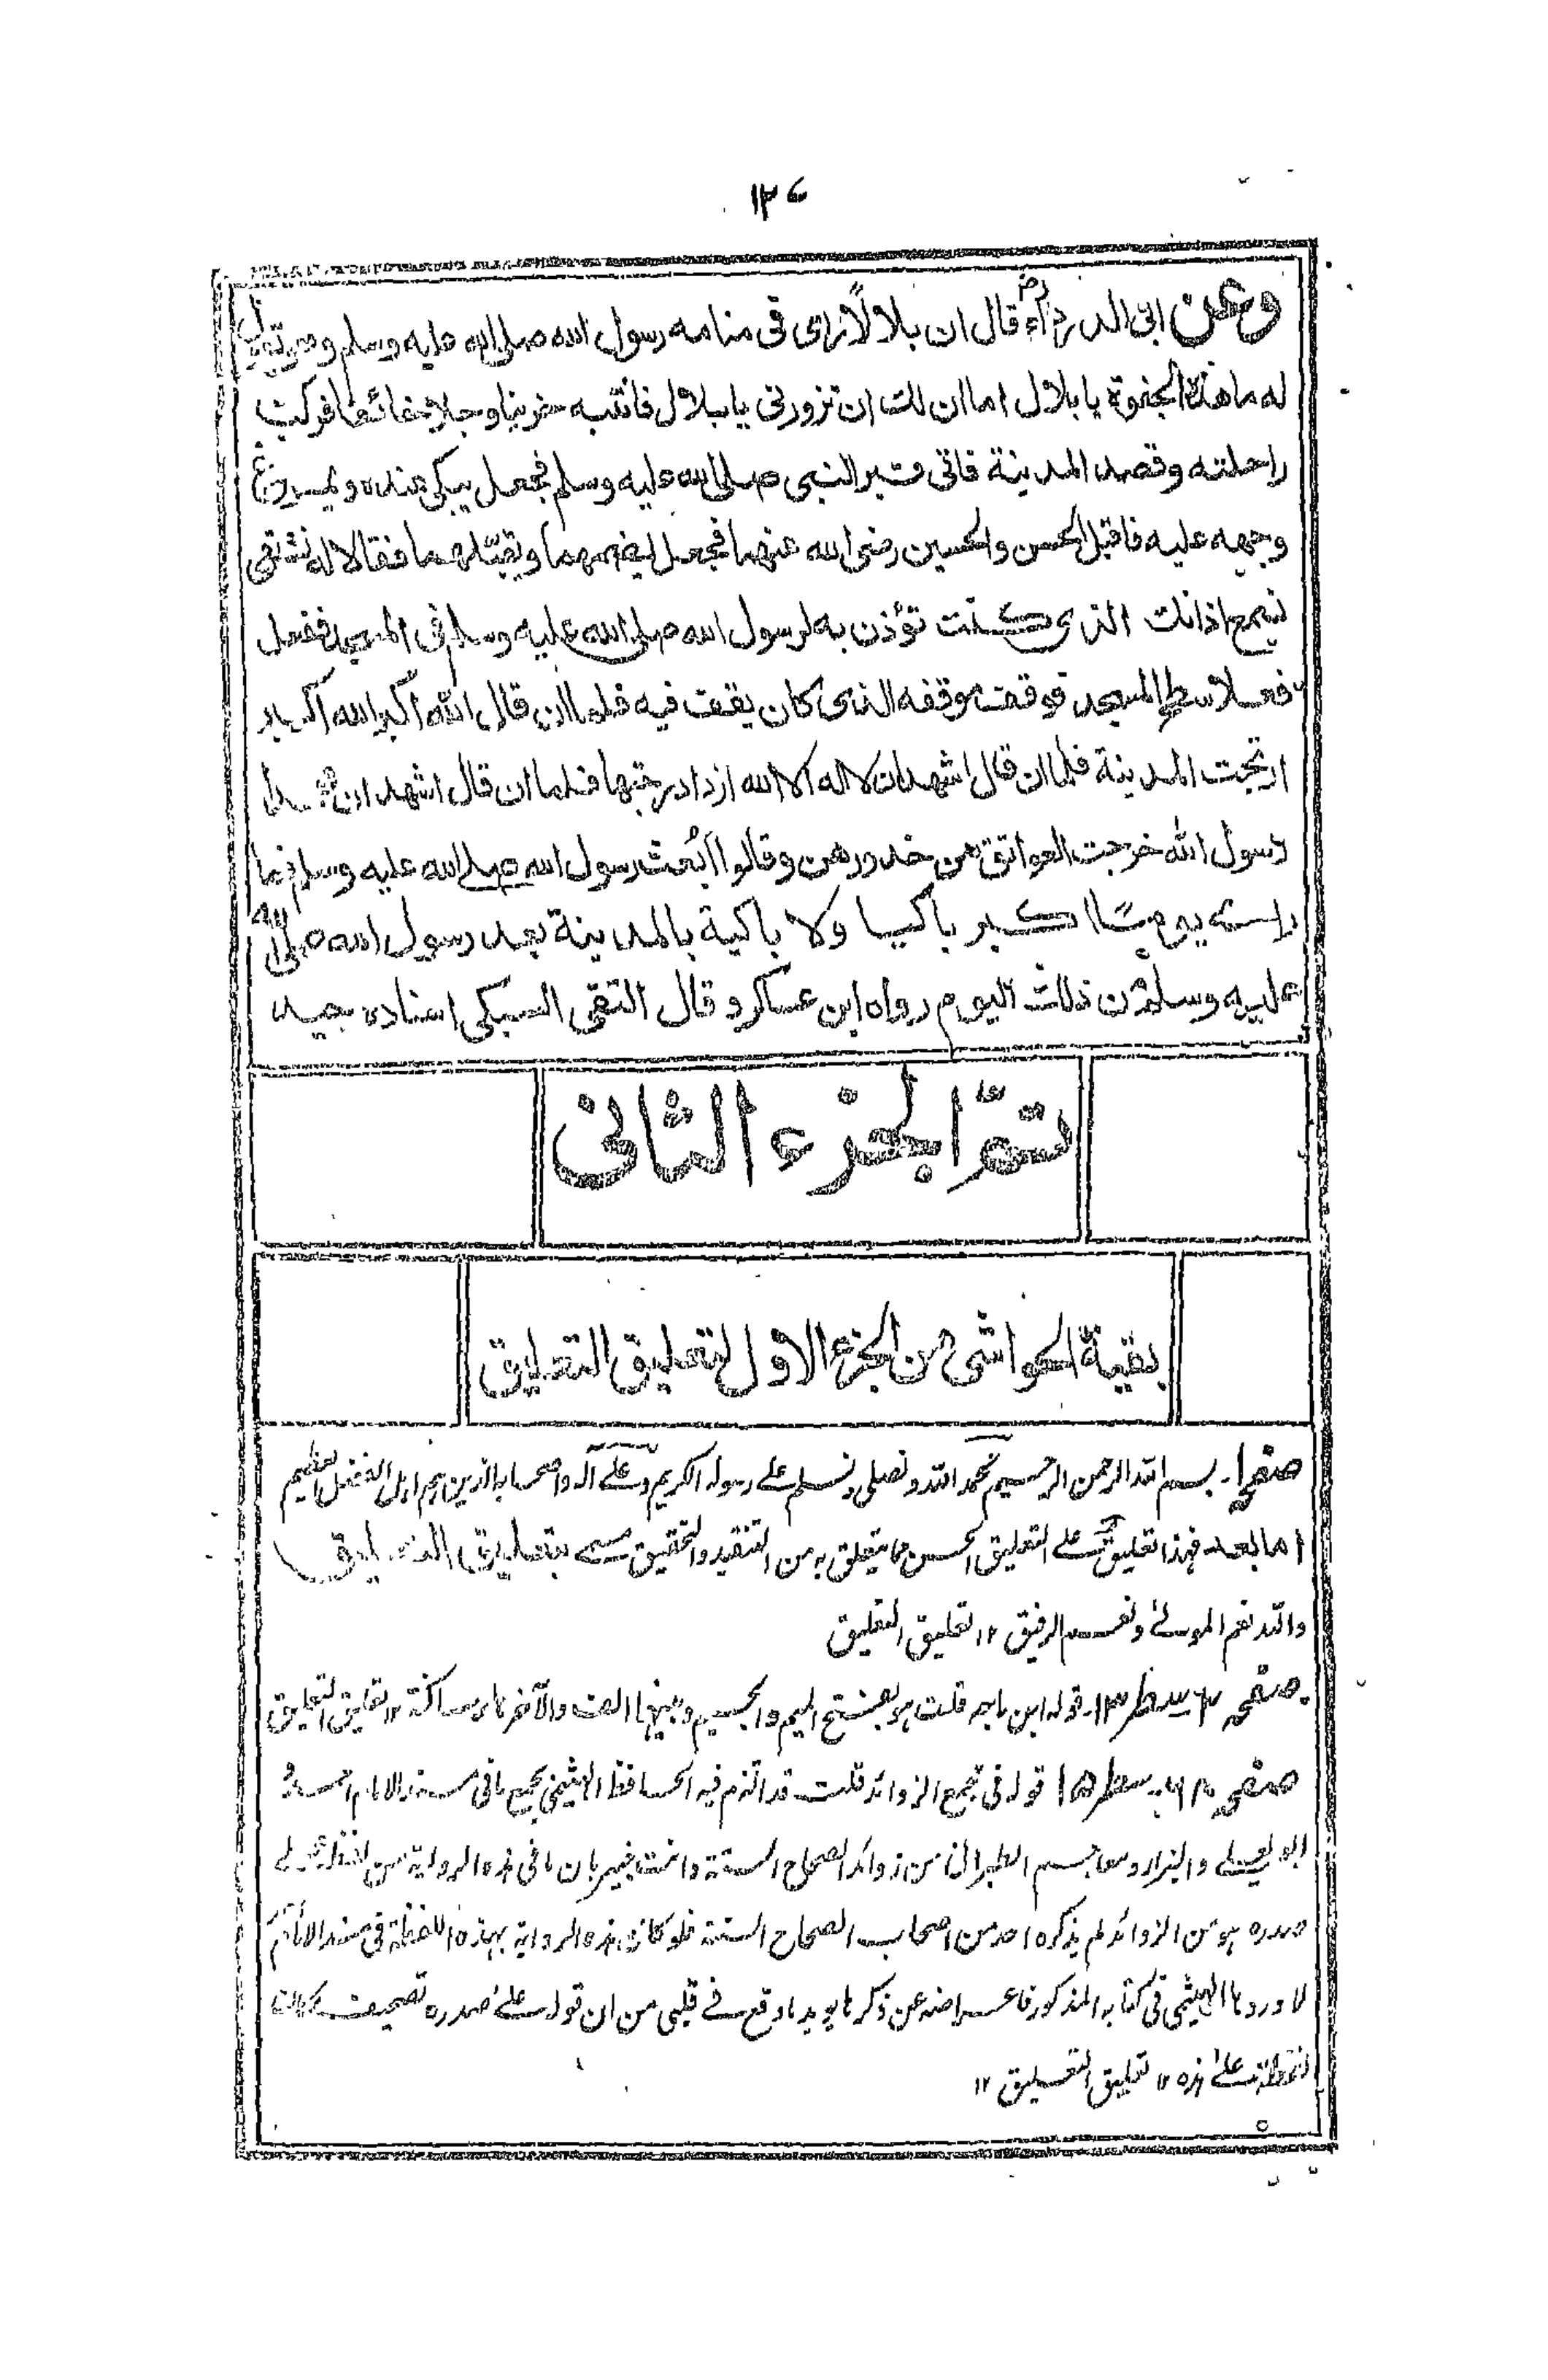 ١٢٧
وعن ابى الدرداء رض قال ان بلالاً رأى فى منامه رسول الله صلى الله عليه وسلم وهو يقول
له ما هذه الجفوة يا بلال اما ان لك ان تزورنى يا بلال فانتبه حزينا وجلا خائفا فركب
راحلته وقصد المدينة فاتى قبر النبى صلى الله عليه وسلم فجعل يبكى عنده ويمرغ
وجهه عليه فاقبل الحسن والحسين رضى الله عنهما فجعل يضمهما ويقبلهما فقالا له نشتهى
نسمع اذانك الذى كنت تؤذن به لرسول الله صلى الله عليه وسلم فى المسجد ففعل
فعلا سطح المسجد فوقف موقفه الذى كان يقف فيه فلما ان قال الله اكبر الله اكبر
ارتجت المدينة فلما ان قال اشهد ان لا اله الا الله ازداد رجتها فلما ان قال اشهد ان محمدا
رسول الله خرجت العواتق من خدورهن وقالوا أبُعث رسول الله صلى الله عليه وسلم فما
يوما اكبر باكيا ولا باكية بالمدينة بعد رسول الله صلى الله
عليه وسلم من ذلك اليوم رواه ابن عساكر وقال التقى السبكى اسناده جيد
تمّ الجزء الثانى
بقية الحواشى من الجزء الاول لتعليق التعليق
صفحه ١- بسم الله الرحمن الرحيم نحمد الله ونصلى ونسلم على رسوله الكريم وعلى اله واصحابه الذين هم اهل الفضل العظيم
اما بعد فهذا تعليق على التعليق الحسن مما يتعلق به من التنقيد والتحقيق مسمى بتعليق التعليق
والله نعم المولى ونعم الرفيق ١٢ تعليق التعليق
صفحه سطر ١٣- قوله ابن ماجه قلت هو بفتح الميم والجيم وبينهما الف والآخر هاء ساكنة ١٢ تعليق التعليق
صفحه سطر ١٥ قوله فى مجمع الزوائد قلت قد التزم فيه الحافظ الهيثمى بجميع ما فى مسند الامام احمد و
ابو يعلى والبزار ومعاجيم الطبرانى من زوائد الصحاح الستة وانت خبير بان ما فى هذه الرواية من لفظ على
صدره هو من الزوائد لم يذكره احد من اصحاب الصحاح الستة فلو كانت هذه الرواية بهذه اللفظة فى مسند الامام
لاوردها الهيثمى فى كتابه المذكور فاعراضه عن ذكرها يويد ما وقع فى قلبى من ان قوله على صدره تصحيف
على هذه ١٢ تعليق التعليق ١٢